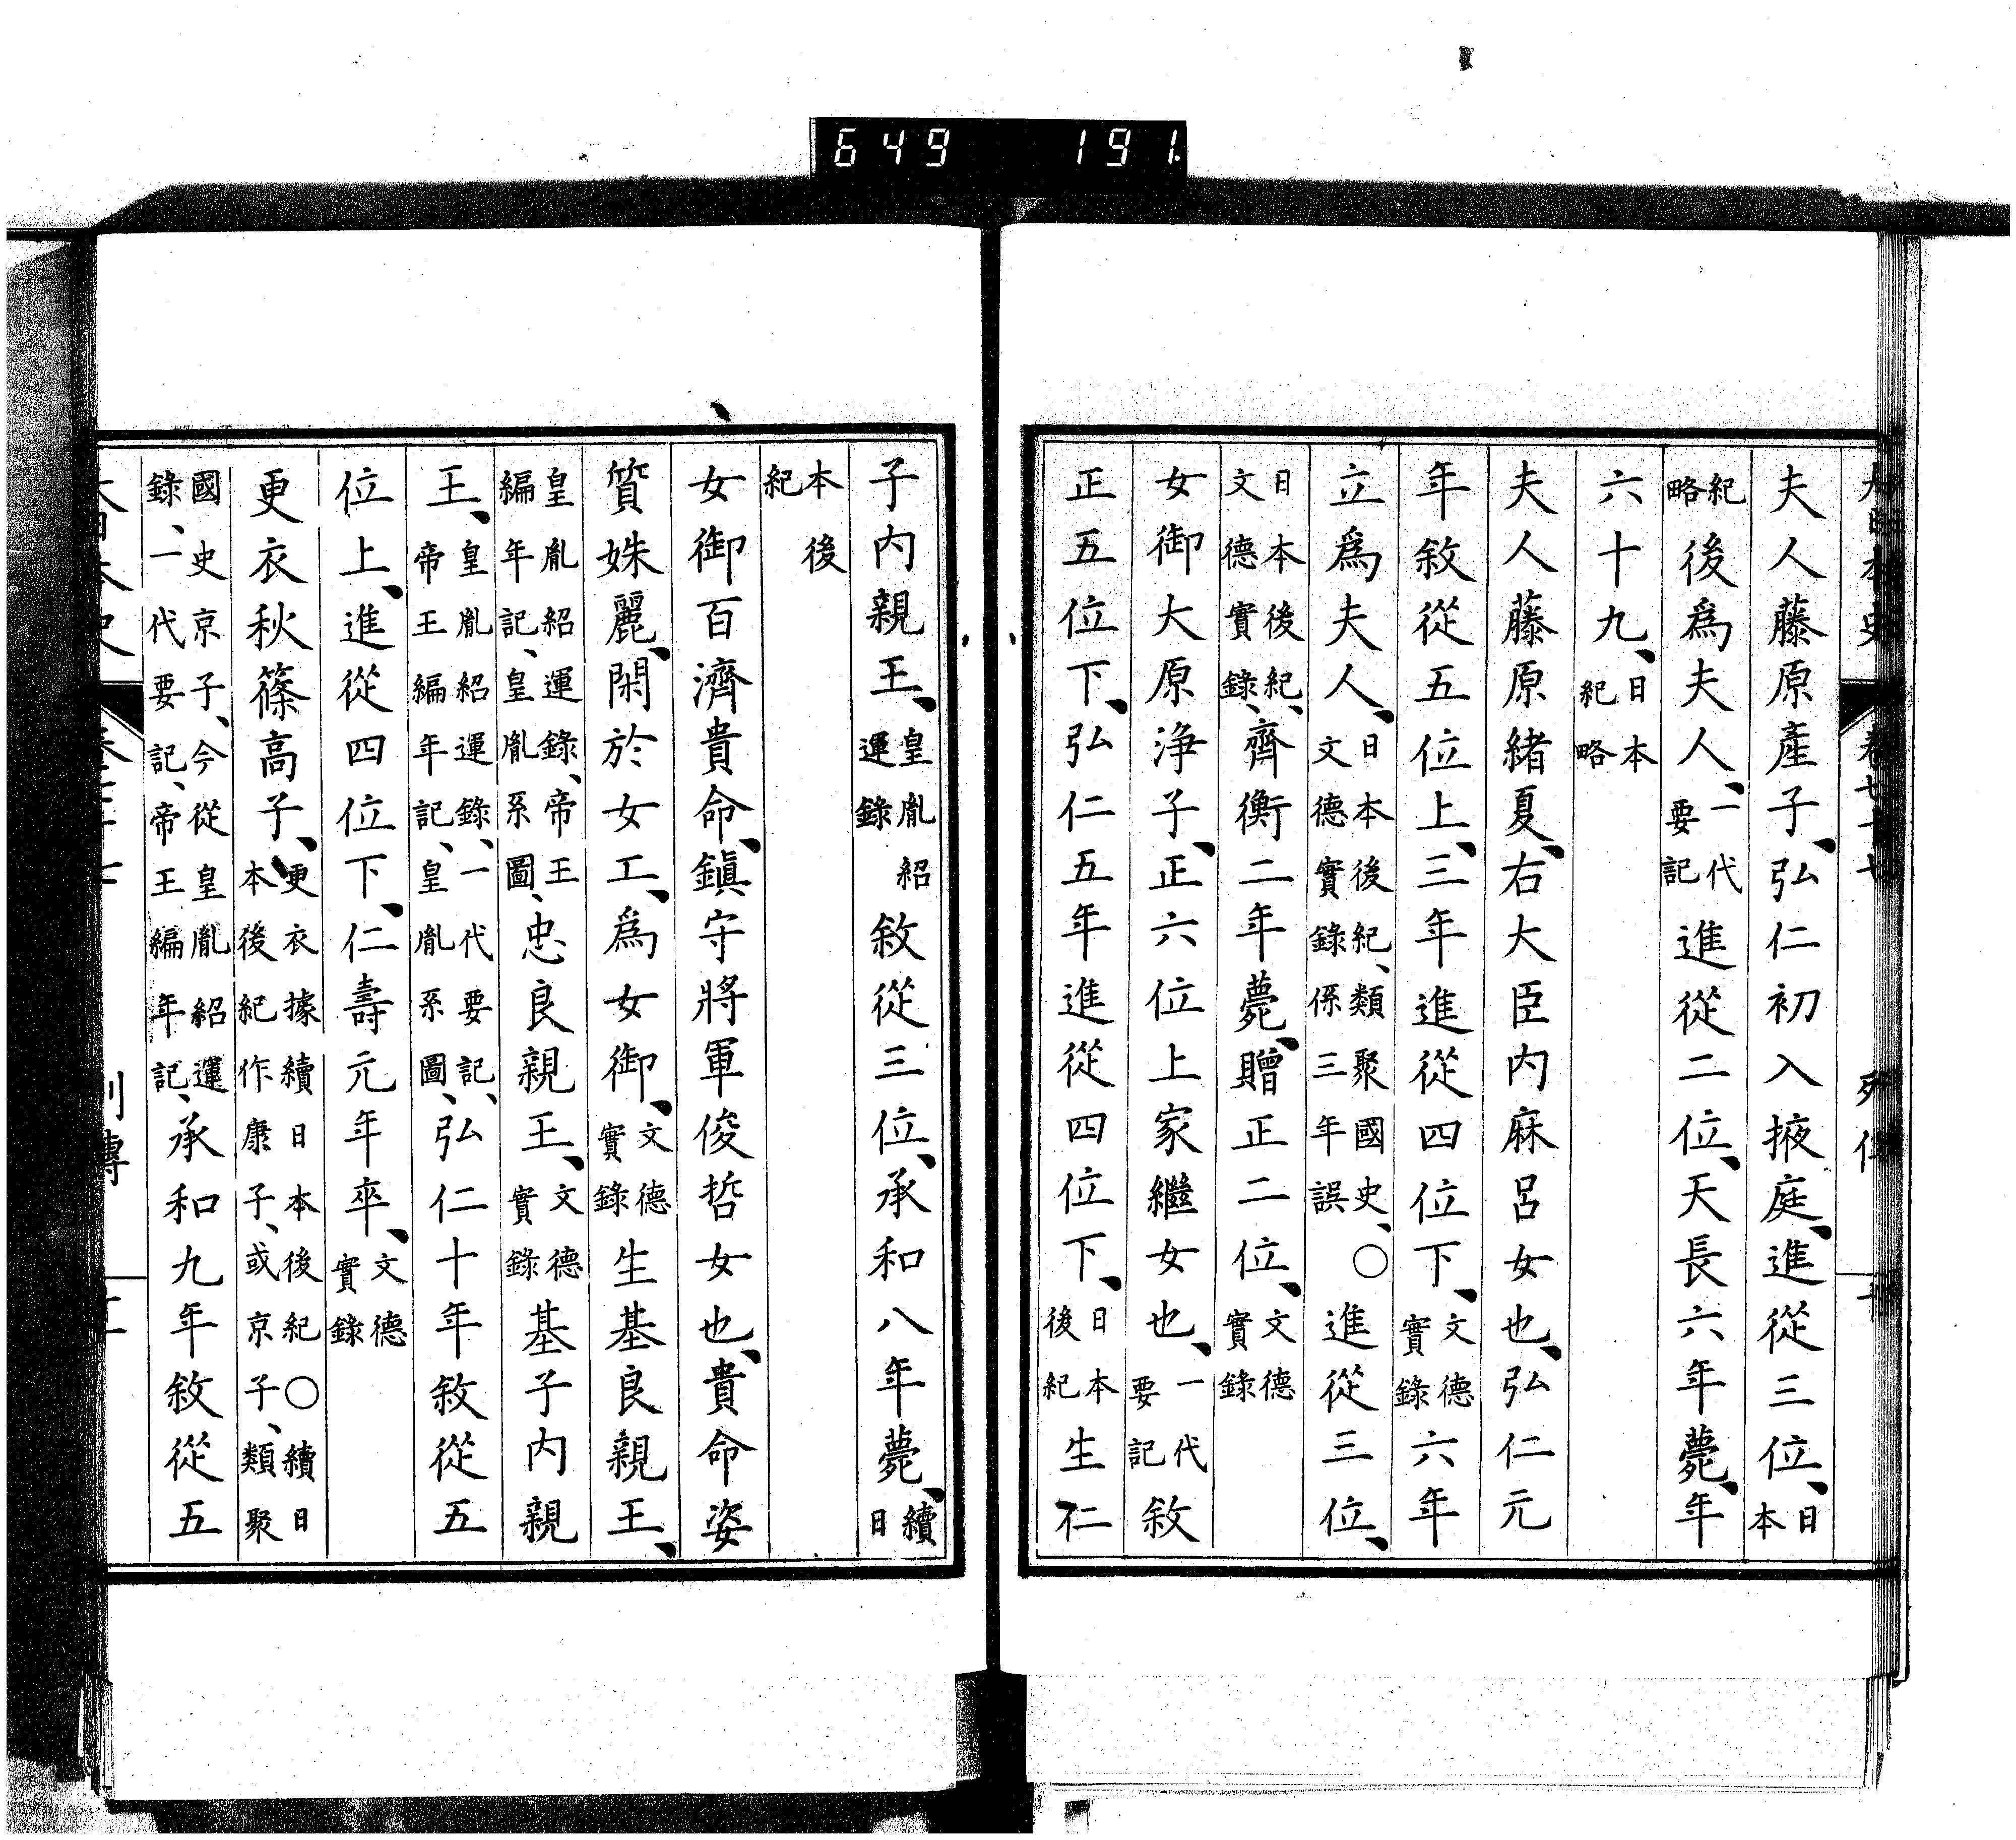 649 191.
夫人藤原產子、弘仁初入掖庭、進從三位、日本
紀略後爲夫人、一代要記進從二位、天長六年薨、年
六十九、日本紀略
夫人藤原緒夏、右大臣内麻呂女也、弘仁元
年敘從五位上、三年進從四位下、文德實錄六年
立爲夫人、日本後紀、類聚國史、〇文德實錄係三年誤進從三位、
日本後紀、文德實錄、齊衡二年薨、贈正二位、文德實錄
女御大原淨子、正六位上家繼女也、一代要記敘
正五位下、弘仁五年進從四位下、日本後紀生仁
子内親王、皇胤紹運錄敘從三位、承和八年薨、續日
本後紀
女御百濟貴命、鎭守將軍俊哲女也、貴命姿
質姝麗、閑於女工、爲女御、文德實錄生基良親王、
皇胤紹運錄、帝王編年記、皇胤系圖、忠良親王、文德實錄基子内親
王、皇胤紹運錄、一代要記、帝王編年記、皇胤系圖、弘仁十年敘從五
位上、進從四位下、仁壽元年卒、文德實錄
更衣秋篠高子、更衣據續日本後紀〇續日本後紀作康子、或京子、類聚
國史京子、今從皇胤紹運錄、一代要記、帝王編年記、承和九年敘從五